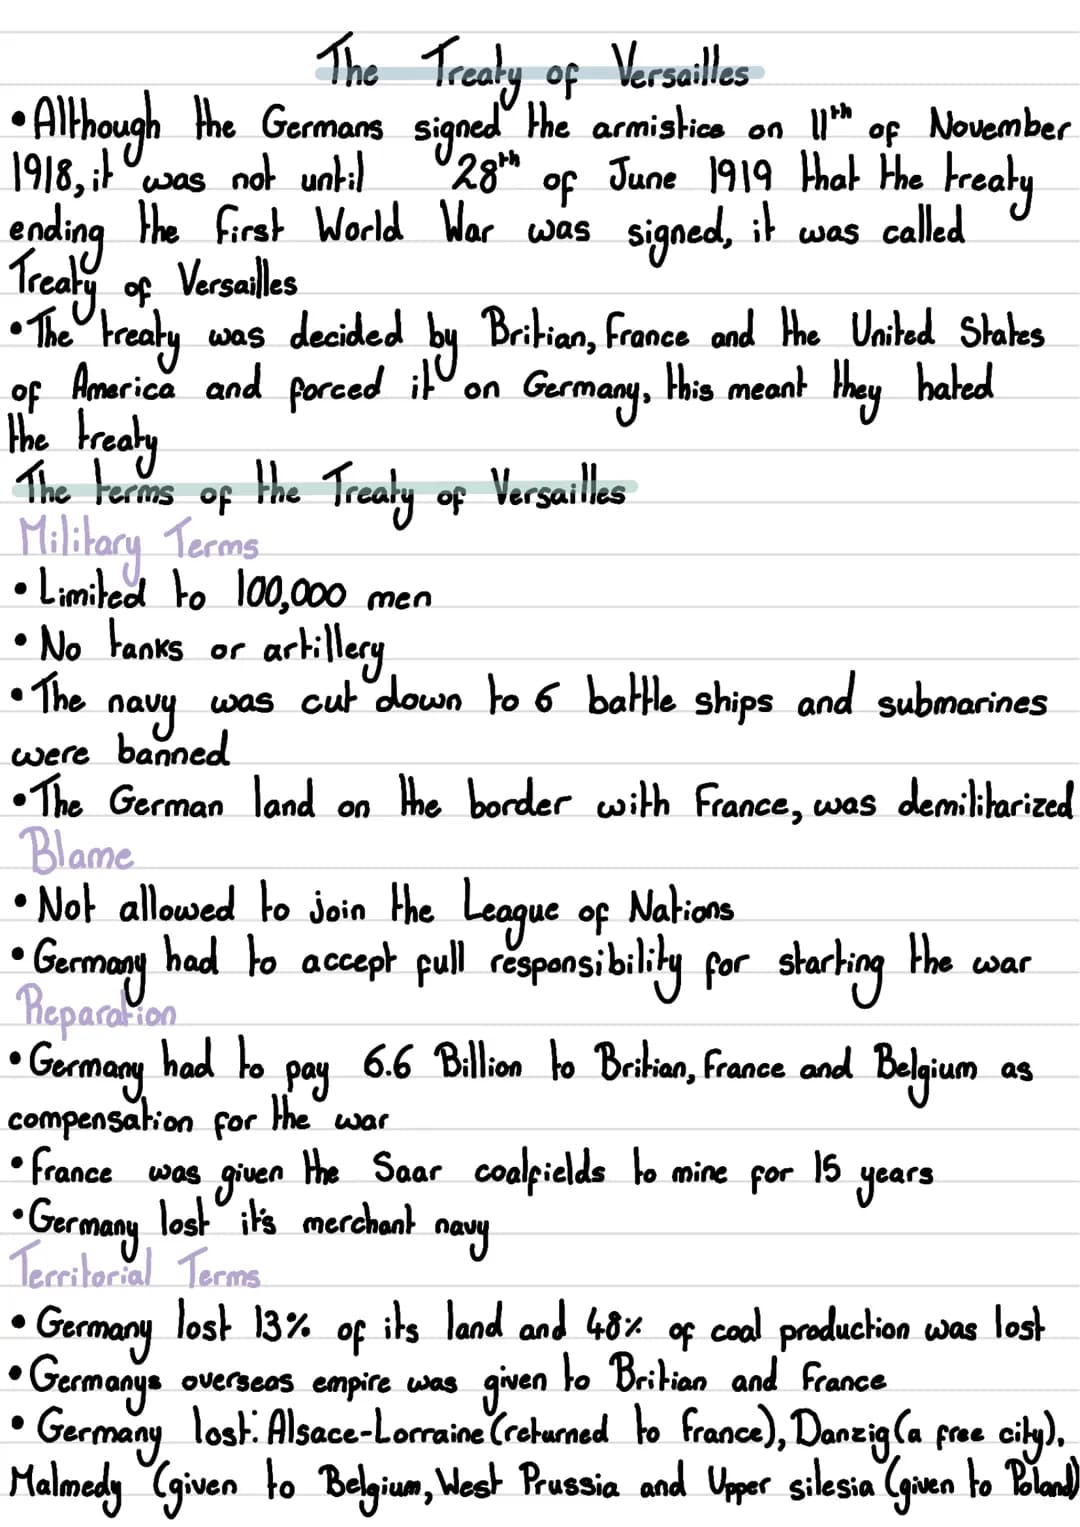 The Treaty of Versailles
• Although the Germans signed the armistice on 11th of November
1918, it was not until 28th of June 1919 that the treaty
ending the first World War was signed, it was called
Treaty of Versailles
• The treaty was decided by Britian, France and the United States
of America and forced it on Germany, this meant they hated
the treaty
The terms of the Treaty of Versailles
Military Terms
• Limited to 100,000 men
• No tanks or artillery
• The navy was cut down to 6 battle ships and submarines
were banned
• The German land on the border with France, was demilitarized
Blame
• Not allowed to join the League of Nations
• Germany had to accept full responsibility for starting the war
Reparation
• Germany had to pay 6.6 Billion to Britian, France and Belgium as
compensation for the war
• France was given the Saar coalfields to mine for 15 years
• Germany lost it's merchant navy
Territorial Terms
• Germany lost 13% of its land and 48% of coal production was lost
• Germanys overseas empire was given to Britian and France
• Germany lost: Alsace-Lorraine (returned to France), Danzig (a free city),
Malmedy (given to Belgium, West Prussia and Upper silesia (given to Poland)